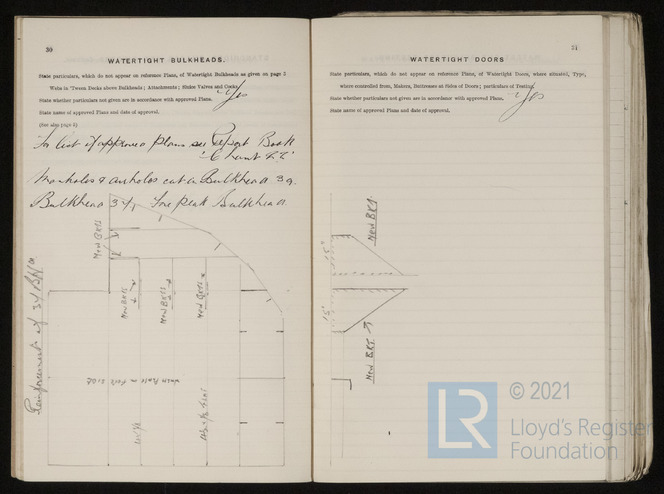 30
WATERTIGHT BULKHEADS.
State particulars, which do not appear on reference Plans, of Watertight Bulkheads as given on page 2
Webs in 'Tween Decks above Bulkheads; Attachments; Sluice Valves and Cocks.
State whether particulars not given are in accordance with approved Plans. Yes
State name of approved Plans and date of approval.
(See also page 2)
For list of approved Plans see Report Book
Manholes & airholes cut in Bulkhead 39.
Bulkhead 37, Fore peak Bulkhead
New BKTS
New BKTS
New BKTS
New BKTS
Reinforcement of
31
WATERTIGHT DOORS
State particulars, which do not appear on reference Plans, of Watertight Doors, where situated, Type,
where controlled from, Makers, Buttresses at Sides of Doors; particulars of Testing.
State whether particulars not given are in accordance with approved Plans. Yes
State name of approved Plans and date of approval.
New BKT
15"
15"
New BKT
LR
© 2021
Lloyd's Register
Foundation